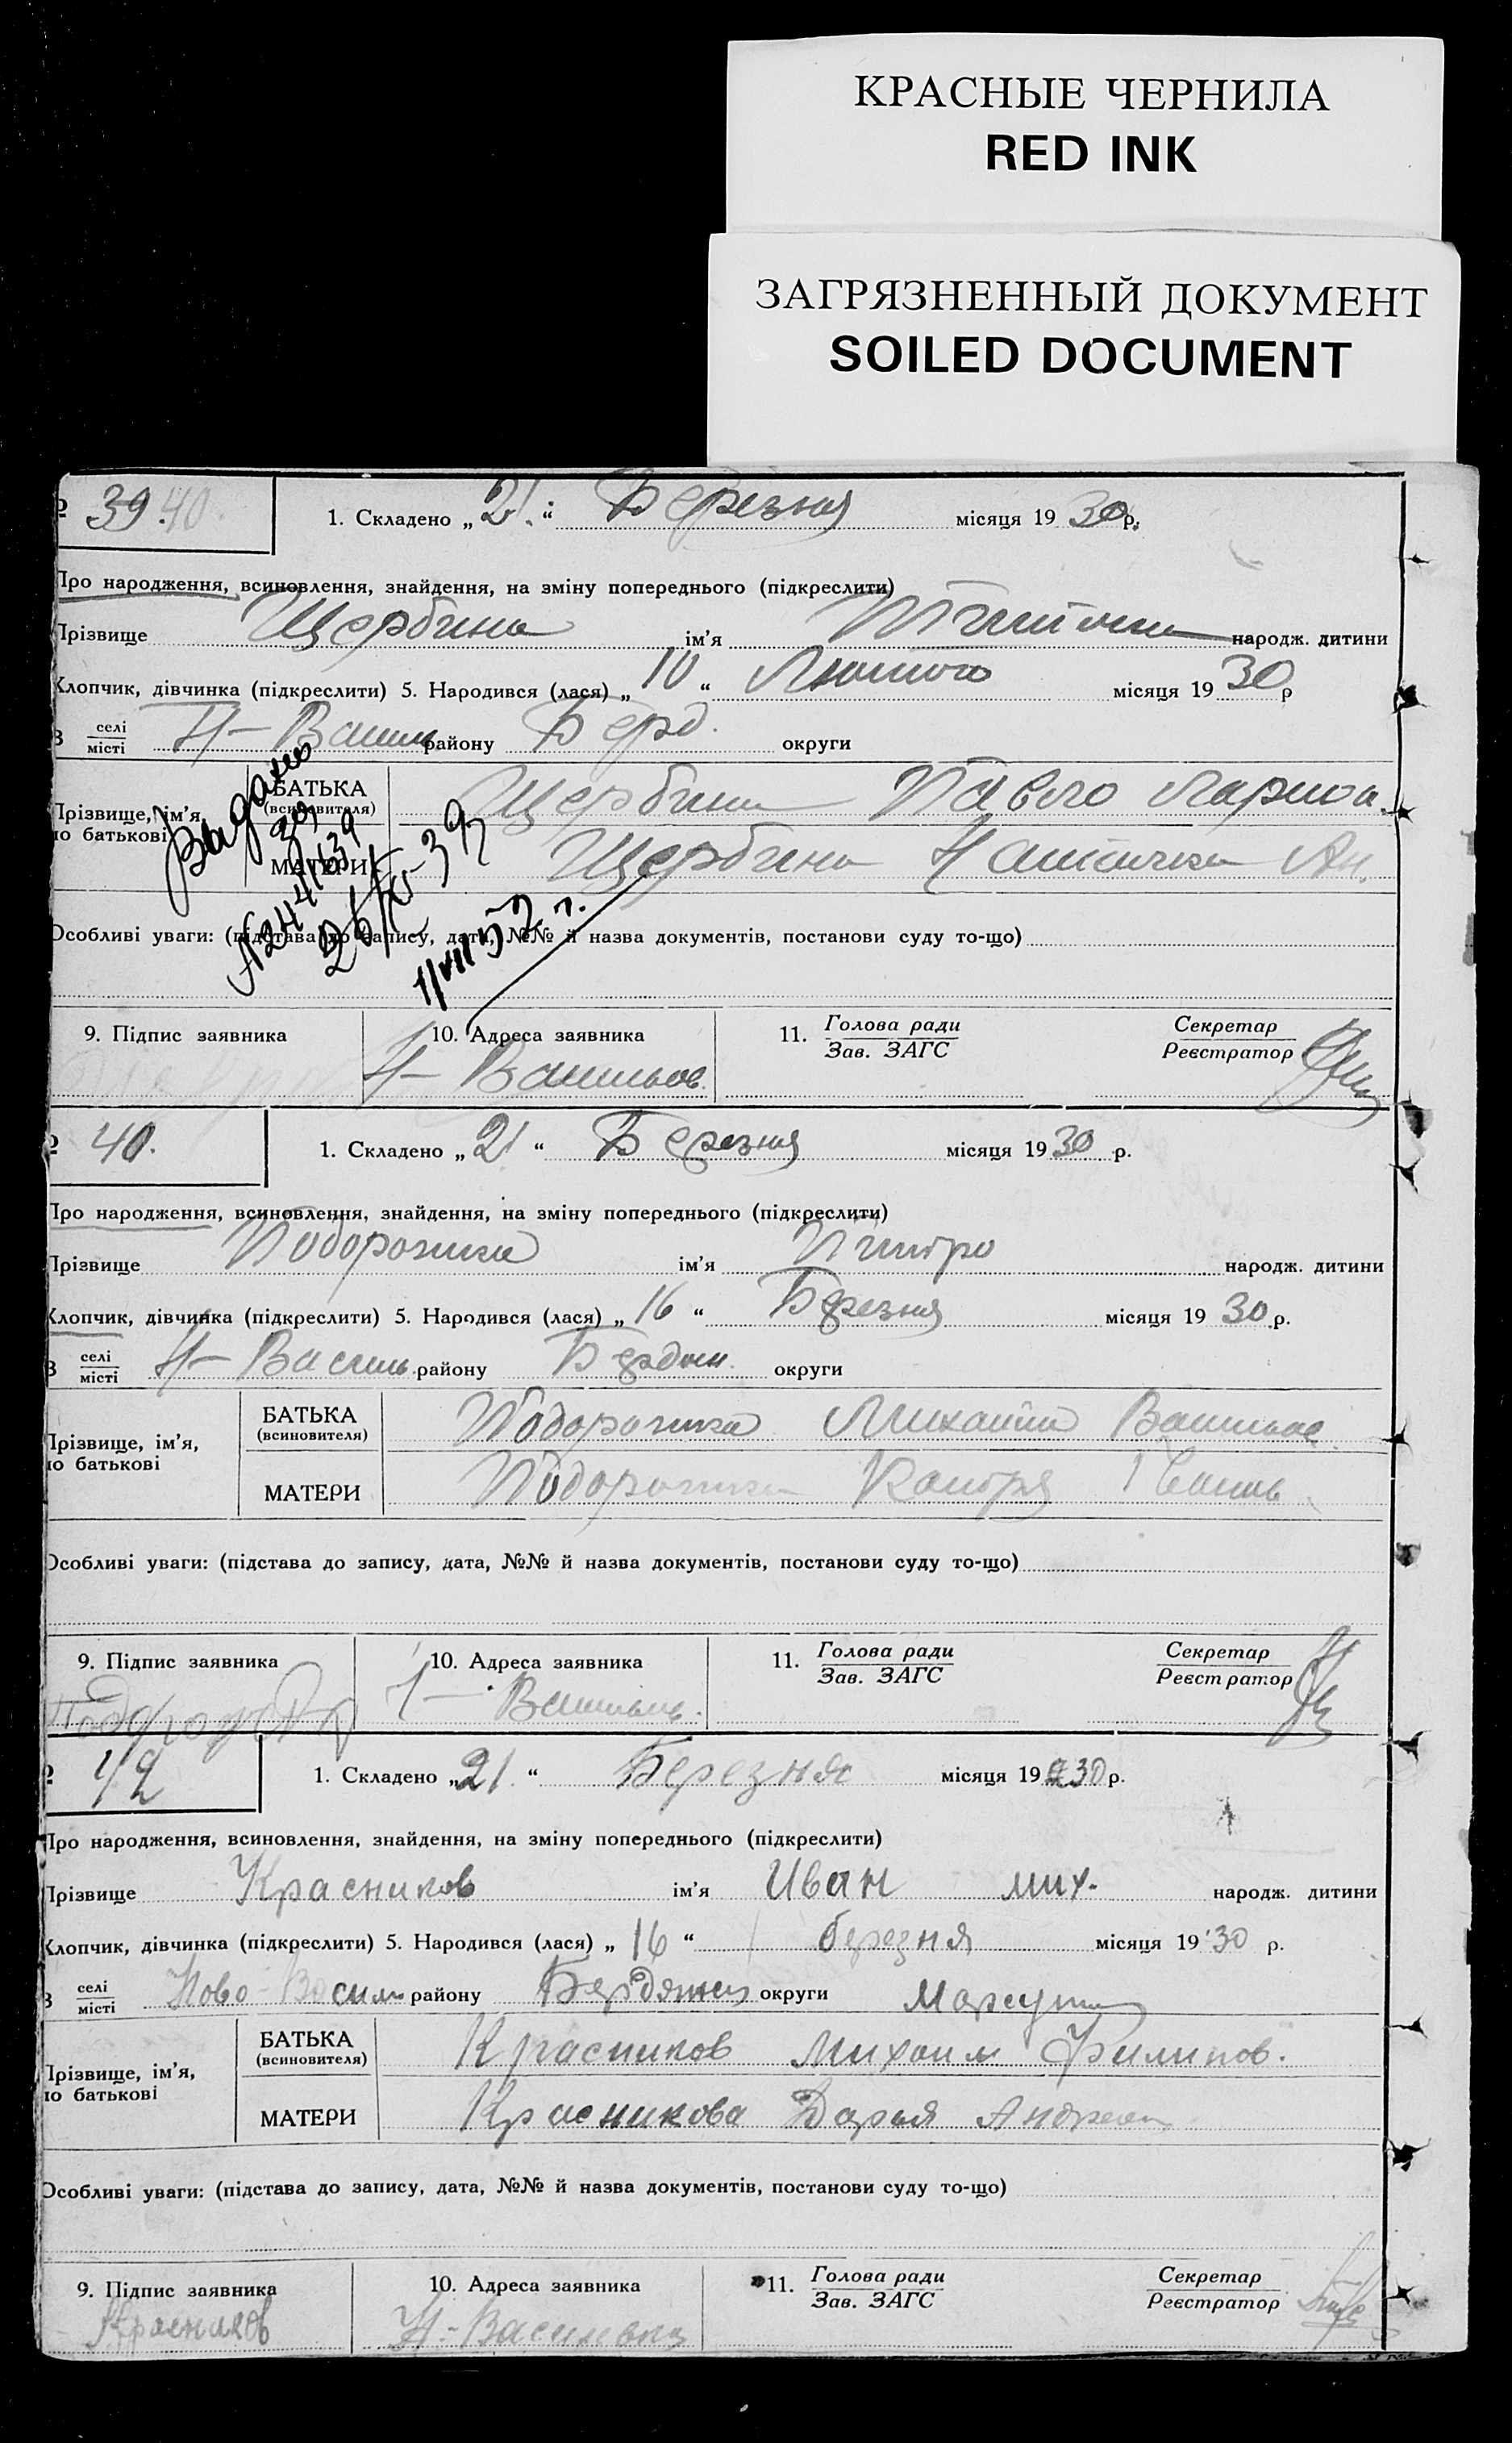 КРАСНЫЕ ЧЕРНИЛА
RED INK
ЗАГРЯЗНЕННЫЙ ДОКУМЕНТ
SOILED DOCUMENT
39. 40. 1. Складено „ 21. “ Березня місяця 19 30 р.
Про народження, всиновлення, знайдення, на зміну попереднього (підкреслити)
Прізвище Щербина ім'я народж. дитини
Хлопчик, дівчинка (підкреслити) 5. Народився (лася) „ 10 “ Лютого місяця 19 30 р
В селі/місті Н- Васил району Берд. округи
Прізвище, ім'я, по батькові БАТЬКА (всиновителя) Щербина Павло
МАТЕРИ Щербина Ан.
Выдано
26/IV-39
1/VII 52 г.
Особливі уваги: (підстава до запису, дата, №№ й назва документів, постанови суду то-що)
9. Підпис заявника 10. Адреса заявника 11. Голова ради/Зав. ЗАГС Секретар/Реєстратор
Н- Васильов.
40. 1. Складено „ 21 “ Березня місяця 19 30 р.
Про народження, всиновлення, знайдення, на зміну попереднього (підкреслити)
Прізвище Подорожка ім'я народж. дитини
Хлопчик, дівчинка (підкреслити) 5. Народився (лася) „ 16 “ Березня місяця 19 30 р.
В селі/місті Н- Василь. району Бердян. округи
Прізвище, ім'я, по батькові БАТЬКА (всиновителя) Подорожка Михайло Васильов.
МАТЕРИ Подорожка
Особливі уваги: (підстава до запису, дата, №№ й назва документів, постанови суду то-що)
9. Підпис заявника 10. Адреса заявника 11. Голова ради/Зав. ЗАГС Секретар/Реєстратор
42 1. Складено „ 21. “ Березня місяця 19 30 р.
Про народження, всиновлення, знайдення, на зміну попереднього (підкреслити)
Прізвище Красников ім'я Иван мих. народж. дитини
Хлопчик, дівчинка (підкреслити) 5. Народився (лася) „ 16 “ березня місяця 19 30 р.
В селі/місті Ново-Васил району округи
Прізвище, ім'я, по батькові БАТЬКА (всиновителя) Красников Михаил Филипов.
МАТЕРИ Красникова Дарья
Особливі уваги: (підстава до запису, дата, №№ й назва документів, постанови суду то-що)
9. Підпис заявника 10. Адреса заявника 11. Голова ради/Зав. ЗАГС Секретар/Реєстратор
Красников